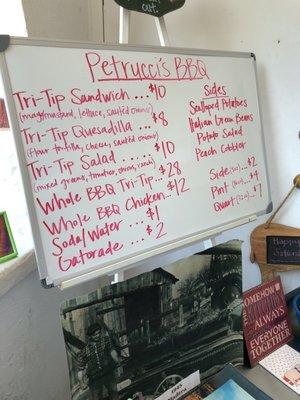 Petrucci's BBQ
Tri-Tip Sandwich ... $10
lettuce, sauted onions)
Tri-Tip Quesadilla ... $8
(flour tortilla, cheese, sauted onions)
Tri-Tip Salad ... $10
(mixed greens, tomatoes, onions, ranch)
Whole BBQ Tri-Tip... $28
Whole BBQ Chicken... $12
Soda/Water ... $1
Gatorade ... $2
Sides
Scalloped Potatoes
Italian Green Beans
Potato Salad
Peach Cobbler
Side $2
Pint $4
Quart $7
out.
Happy
SOMEHOW
ALWAYS
EVERYONE
TOGETHER